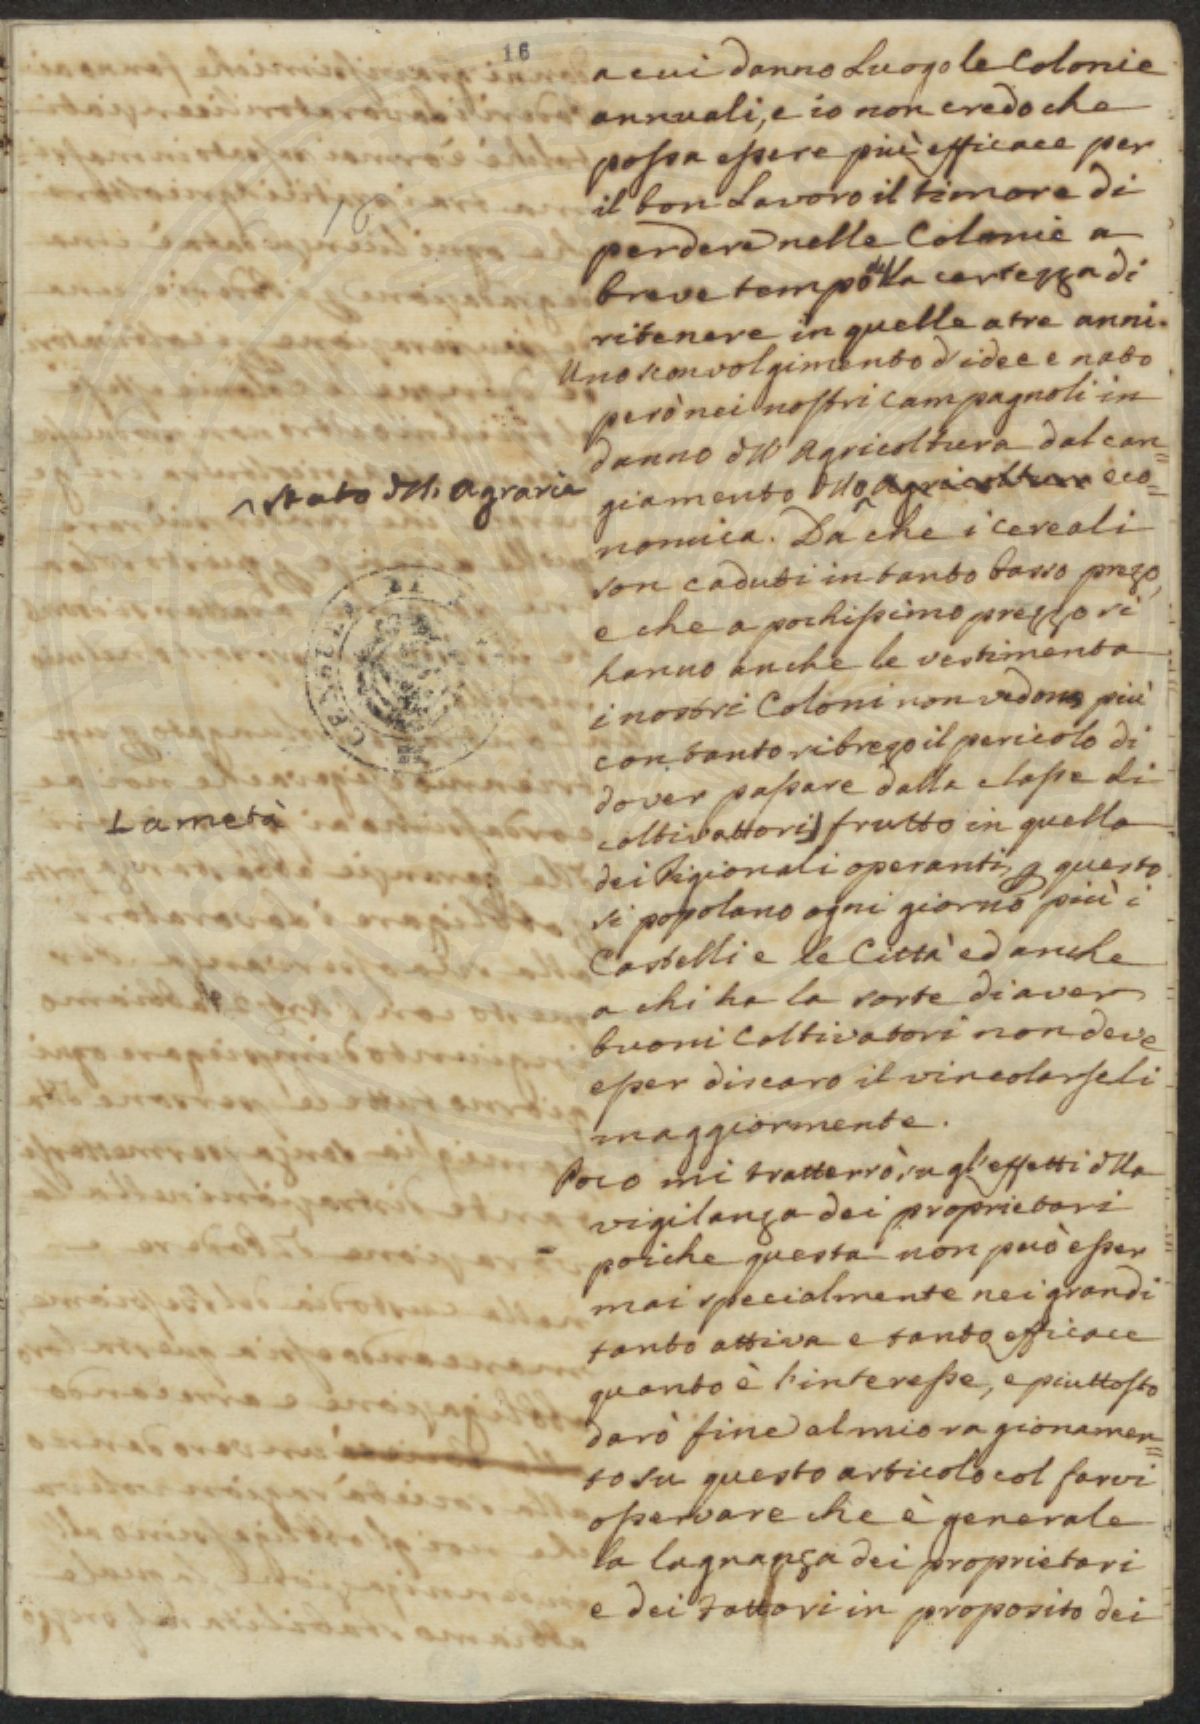 16
16
a cui danno Luogo le Colonie
annuali, e io non credo che
possa essere più efficace per
il bon Lavoro il timore di
perdere nelle Colonie a
breve tempo della certezza di
ritenere in quelle a tre anni.
Uno sconvolgimento d'idee e nato
però nei nostri campagnoli in
danno dll' Agricoltura dal can=
giamento dllo Agricoltura eco=
^ stato dll' agraria
nomica. Da che i cereali
son caduti in tanto basso prezo,
e che a pochissimo prezzo si
hanno anche le vestimenta
i nostri Coloni non vedono più
con tanto ribrezo il pericolo di
dover passare dalla classe di
coltivattori) frutto in quella
La metà
dei Pigionali operanti, e questo
si popolano ogni giorno più i
Castelli e le Città ed anche
a chi ha la sorte di aver
buoni Coltivatori non deve
esser discaro il vincolarseli
maggiormente.
Poco mi tratterrò su gl'effetti dlla
vigilanza dei proprietari
poiche questa non può esser
mai specialmente nei grandi
tanto attiva e tanto efficace
quanto è l'interesse, e piuttosto
darò fine al mio ragionamen=
to su questo articolo col farvi
osservare che è generale
la lagnanza dei proprietari
e dei Fattori in proposito dei